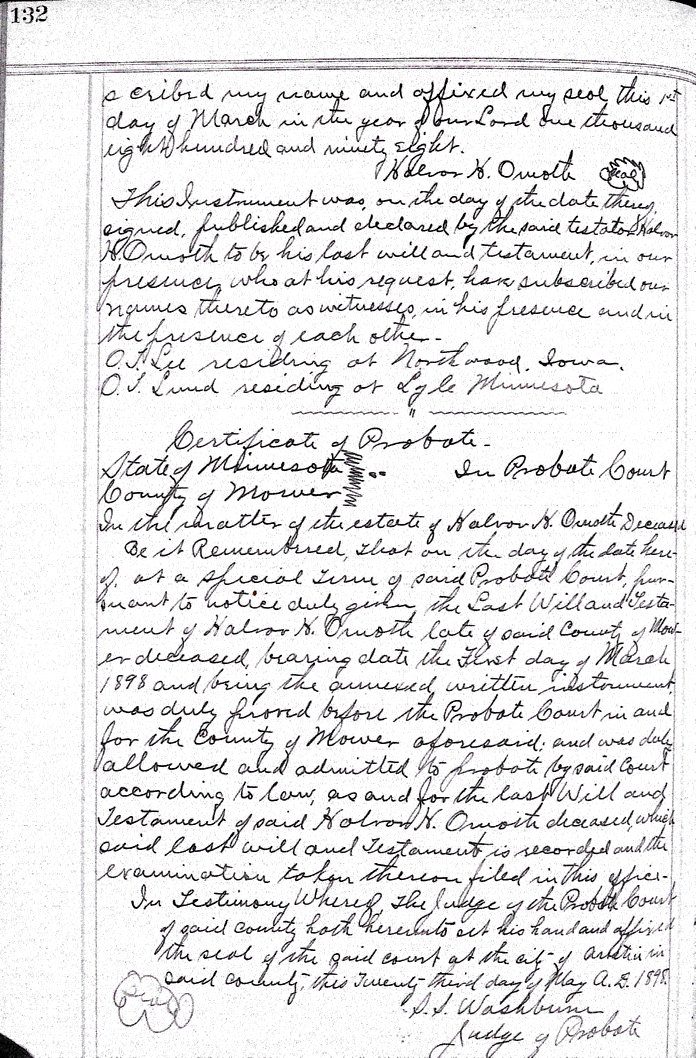 132
scribed my name and affixed my seal, this 1st
day of March in the year of our Lord one thousand
eight hundred and ninety eight.
Halvor H. Omoth Seal
This Instrument was, on the day of the date thereof,
signed, published and declared by the said testator Halvor
H. Omoth to be his last will and testament, in our
presence, who at his request, have subscribed our
names thereto as witnesses, in his presence and in
the presence of each other.
O. T. Lee residing at Northwood, Iowa.
O. T. Lund residing at Lyle Minnesota
"
Certificate of Probate.
State of Minnesota In Probate Court
County of Mower
In the matter of the estate of Halvor H. Omoth Deceased
Be it Remembered, that on the day of the date here-
of, at a special Term of said Probate Court, pur-
suant to notice duly given, the Last Will and Testa-
ment of Halvor H. Omoth late of said County of Mow-
er deceased, bearing date the First day of March
1898 and being the annexed written instrument,
was duly proved before the Probate Court in and
for the County of Mower aforesaid; and was duly
allowed and admitted to probate by said Court
according to law, as and for the last Will and
Testament of said Halvor H. Omoth deceased, which
said last will and Testament, is recorded and the
examination taken thereon filed in this office.
In Testimony Whereof, The Judge of the Probate Court
of said county hath hereunto set his hand and affixed
the seal of the said court at the city of Austin in
said county, this Twenty third day of May A.D. 1898.
Seal S. S. Washburn
Judge of Probate